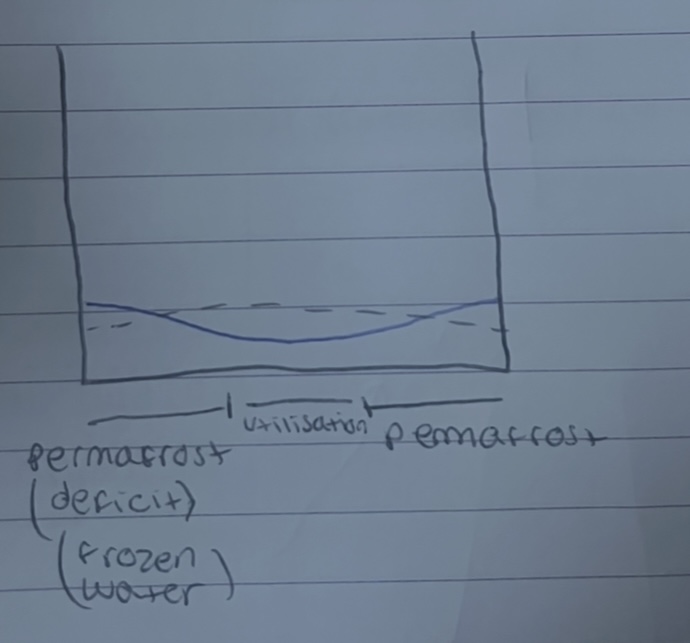 utilisation
permafrost
permafrost
(deficit)
(frozen
water)